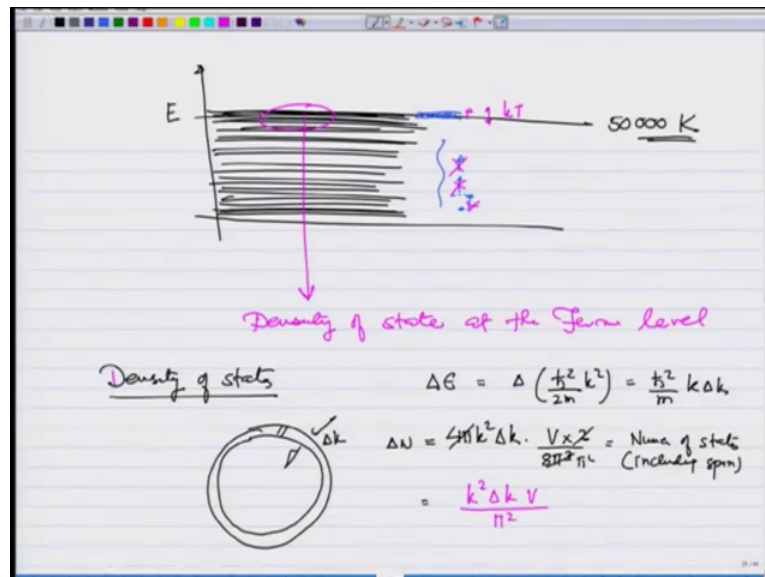 E
kT
50000 K
Density of state at the Fermi level
Density of states
ΔE = Δ (ħ²/2m k²) = ħ²/m k Δk
Δk
ΔN = 4π k² Δk · V × 2 / 8π³ π² = Numer of states
(including spin)
= k² Δk V / π²